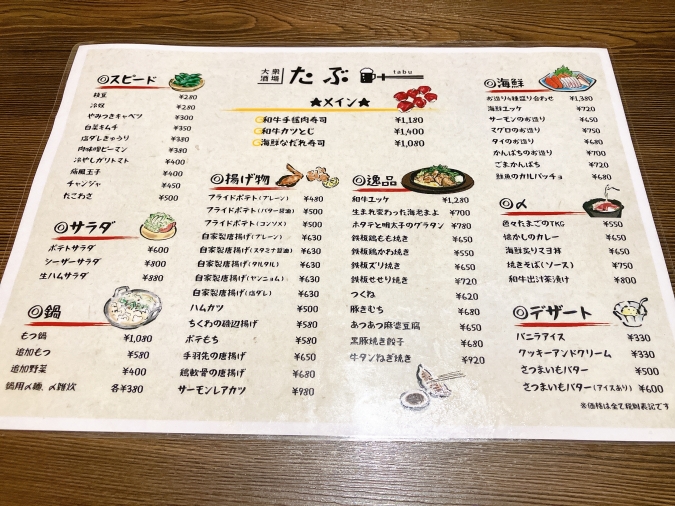 大衆酒場 たぶ tabu
◎スピード
枝豆 ¥280
冷奴 ¥280
やみつきキャベツ ¥300
白菜キムチ ¥350
塩ダレきゅうり ¥380
肉味噌ピーマン ¥380
冷やしガリトマト ¥400
痛風玉子 ¥400
チャンジャ ¥450
たこわさ ¥500
◎サラダ
ポテトサラダ ¥600
シーザーサラダ ¥800
生ハムサラダ ¥880
◎鍋
もつ鍋 ¥1,080
追加もつ ¥580
追加野菜 ¥400
鍋用〆麺、〆雑炊 各¥380
★メイン★
和牛手毬肉寿司 ¥1,180
和牛カツとじ ¥1,400
海鮮なだれ寿司 ¥1,080
◎揚げ物
フライドポテト(プレーン) ¥480
フライドポテト(バター醤油) ¥500
フライドポテト(コンソメ) ¥500
自家製唐揚げ(プレーン) ¥580
自家製唐揚げ(スタミナ醤油) ¥630
自家製唐揚げ(タルタル) ¥630
自家製唐揚げ(ヤンニョム) ¥630
自家製唐揚げ(塩ダレ) ¥630
ハムカツ ¥500
ちくわの磯辺揚げ ¥580
ポテもち ¥580
手羽先の唐揚げ ¥650
鶏軟骨の唐揚げ ¥680
サーモンレアカツ ¥980
◎逸品
和牛ユッケ ¥1,280
生まれ変わった海老まよ ¥700
ホタテと明太子のグラタン ¥780
鉄板鶏もも焼き ¥650
鉄板鶏かわ焼き ¥550
鉄板ズリ焼き ¥650
鉄板せせり焼き ¥720
つくね ¥620
豚きむち ¥680
あつあつ麻婆豆腐 ¥680
黒豚焼き餃子 ¥680
牛タンねぎ焼き ¥920
◎海鮮
お造り4種盛り合わせ ¥1,380
海鮮ユッケ ¥720
サーモンのお造り ¥750
マグロのお造り ¥750
タイのお造り ¥680
かんぱちのお造り ¥720
ごまかんぱち ¥720
鮮魚のカルパッチョ ¥680
◎〆
色々たまごのTKG ¥550
懐かしのカレー ¥650
海鮮炙りマヨ丼 ¥650
焼きそば(ソース) ¥750
和牛出汁茶漬け ¥800
◎デザート
バニラアイス ¥330
クッキーアンドクリーム ¥330
さつまいもバター ¥500
さつまいもバター(アイスあり) ¥600
※価格は全て税別表記です